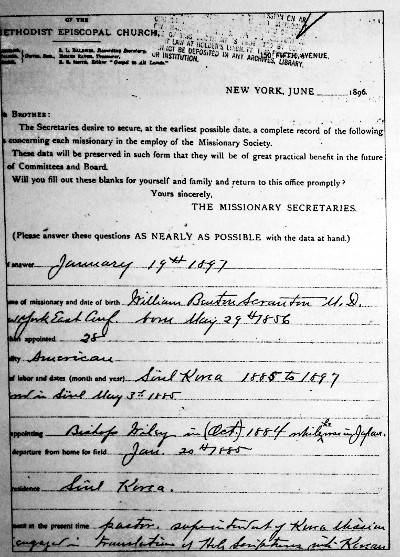 OF THE
METHODIST EPISCOPAL CHURCH,
FIFTH AVENUE,
NOT BE DEPOSITED IN ANY ARCHIVES, LIBRARY,
OR INSTITUTION.
S. L. BALDWIN, Recording Secretary.
NEW YORK, JUNE 1896.
BROTHER:
The Secretaries desire to secure, at the earliest possible date, a complete record of the following
s concerning each missionary in the employ of the Missionary Society.
These data will be preserved in such form that they will be of great practical benefit in the future
of Committees and Board.
Will you fill out these blanks for yourself and family and return to this office promptly?
Yours sincerely,
THE MISSIONARY SECRETARIES.
(Please answer these questions AS NEARLY AS POSSIBLE with the data at hand.)
f answer January 19th 1897
me of missionary and date of birth William Benton Scranton M.D.
York East Conf. born May 29th 1856
en appointed 28
ity American
of labor and dates (month and year) Söul Korea 1885 to 1897
in Söul May 3rd 1885
appointing Bishop Wiley in (Oct.) 1884 while he was in Japan.
departure from home for field Jan. 20th 1885
residence Söul Korea.
ment in the present time pastor. superintendent of Korea Mission
engaged in translation of Holy Scriptures into Korean